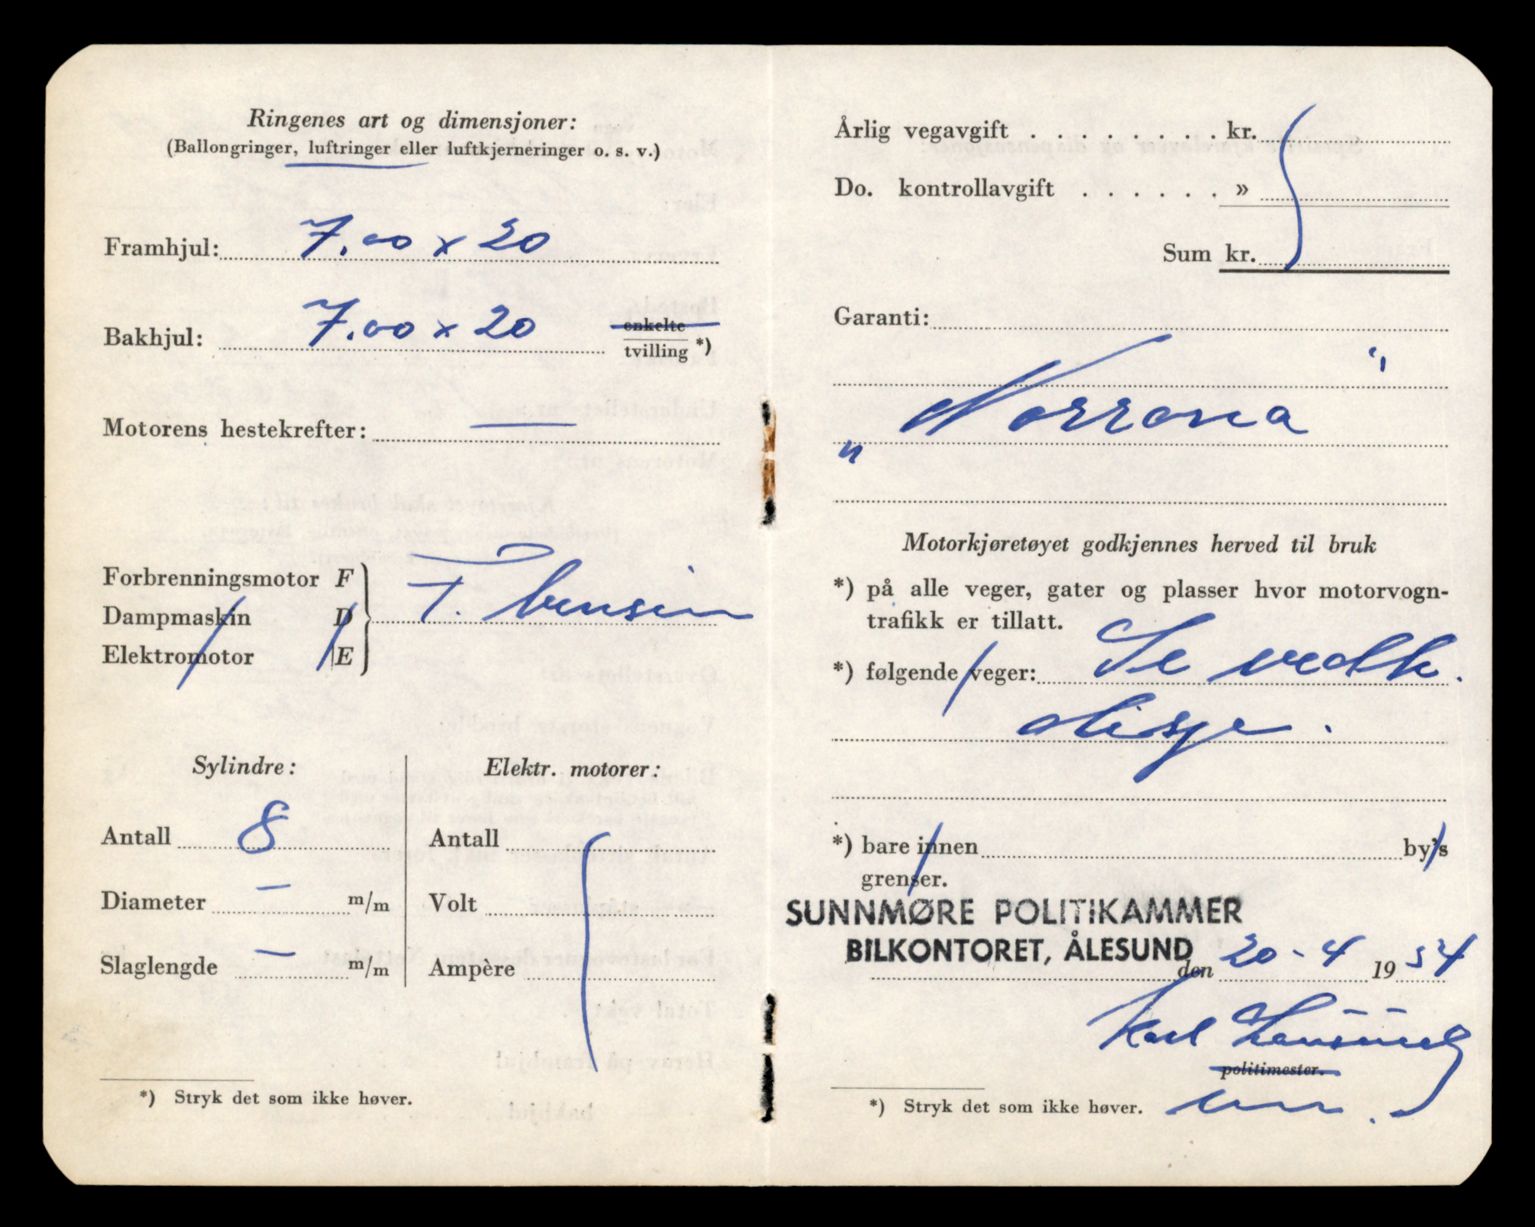 Ringenes art og dimensjoner:
(Ballongringer, luftringer eller luftkjerneringer o. s. v.)
Framhjul: 7.00 x 20
Bakhjul: 7.00 x 20 enkelte
tvilling *)
Motorens hestekrefter: —
Forbrenningsmotor F
Dampmaskin D
Elektromotor E
F. bensin
Sylindre:
Antall 8
Diameter — m/m
Slaglengde — m/m
Elektr. motorer:
Antall
Volt
Ampère
*) Stryk det som ikke høver.
Årlig vegavgift . . . . . . . . kr.
Do. kontrollavgift . . . . . . »
Sum kr.
Garanti:
„Norrona"
Motorkjøretøyet godkjennes herved til bruk
*) på alle veger, gater og plasser hvor motorvogn-
trafikk er tillatt.
*) følgende veger: Se vedh.
disp.
*) bare innen by's
grenser.
SUNNMØRE POLITIKAMMER
BILKONTORET, ÅLESUND
den 20-4 1954
Karl
politimester.
*) Stryk det som ikke høver.